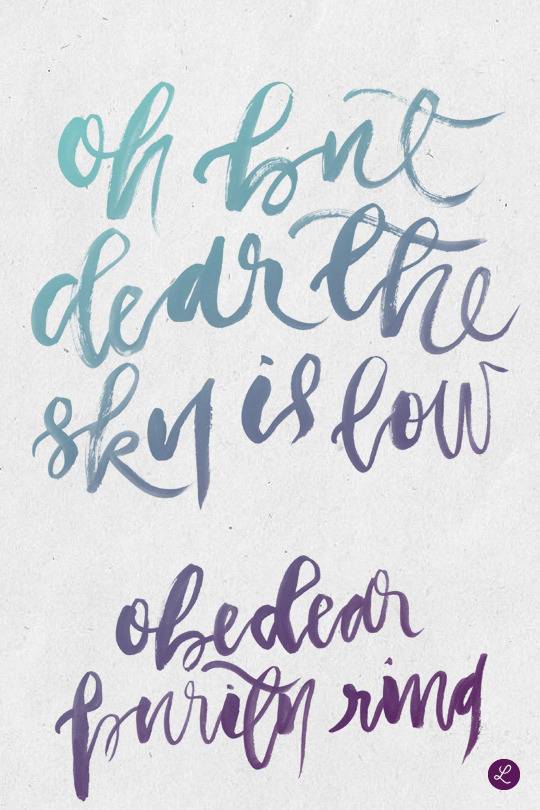 oh but
dear the
sky is low
obedear
purity ring
L